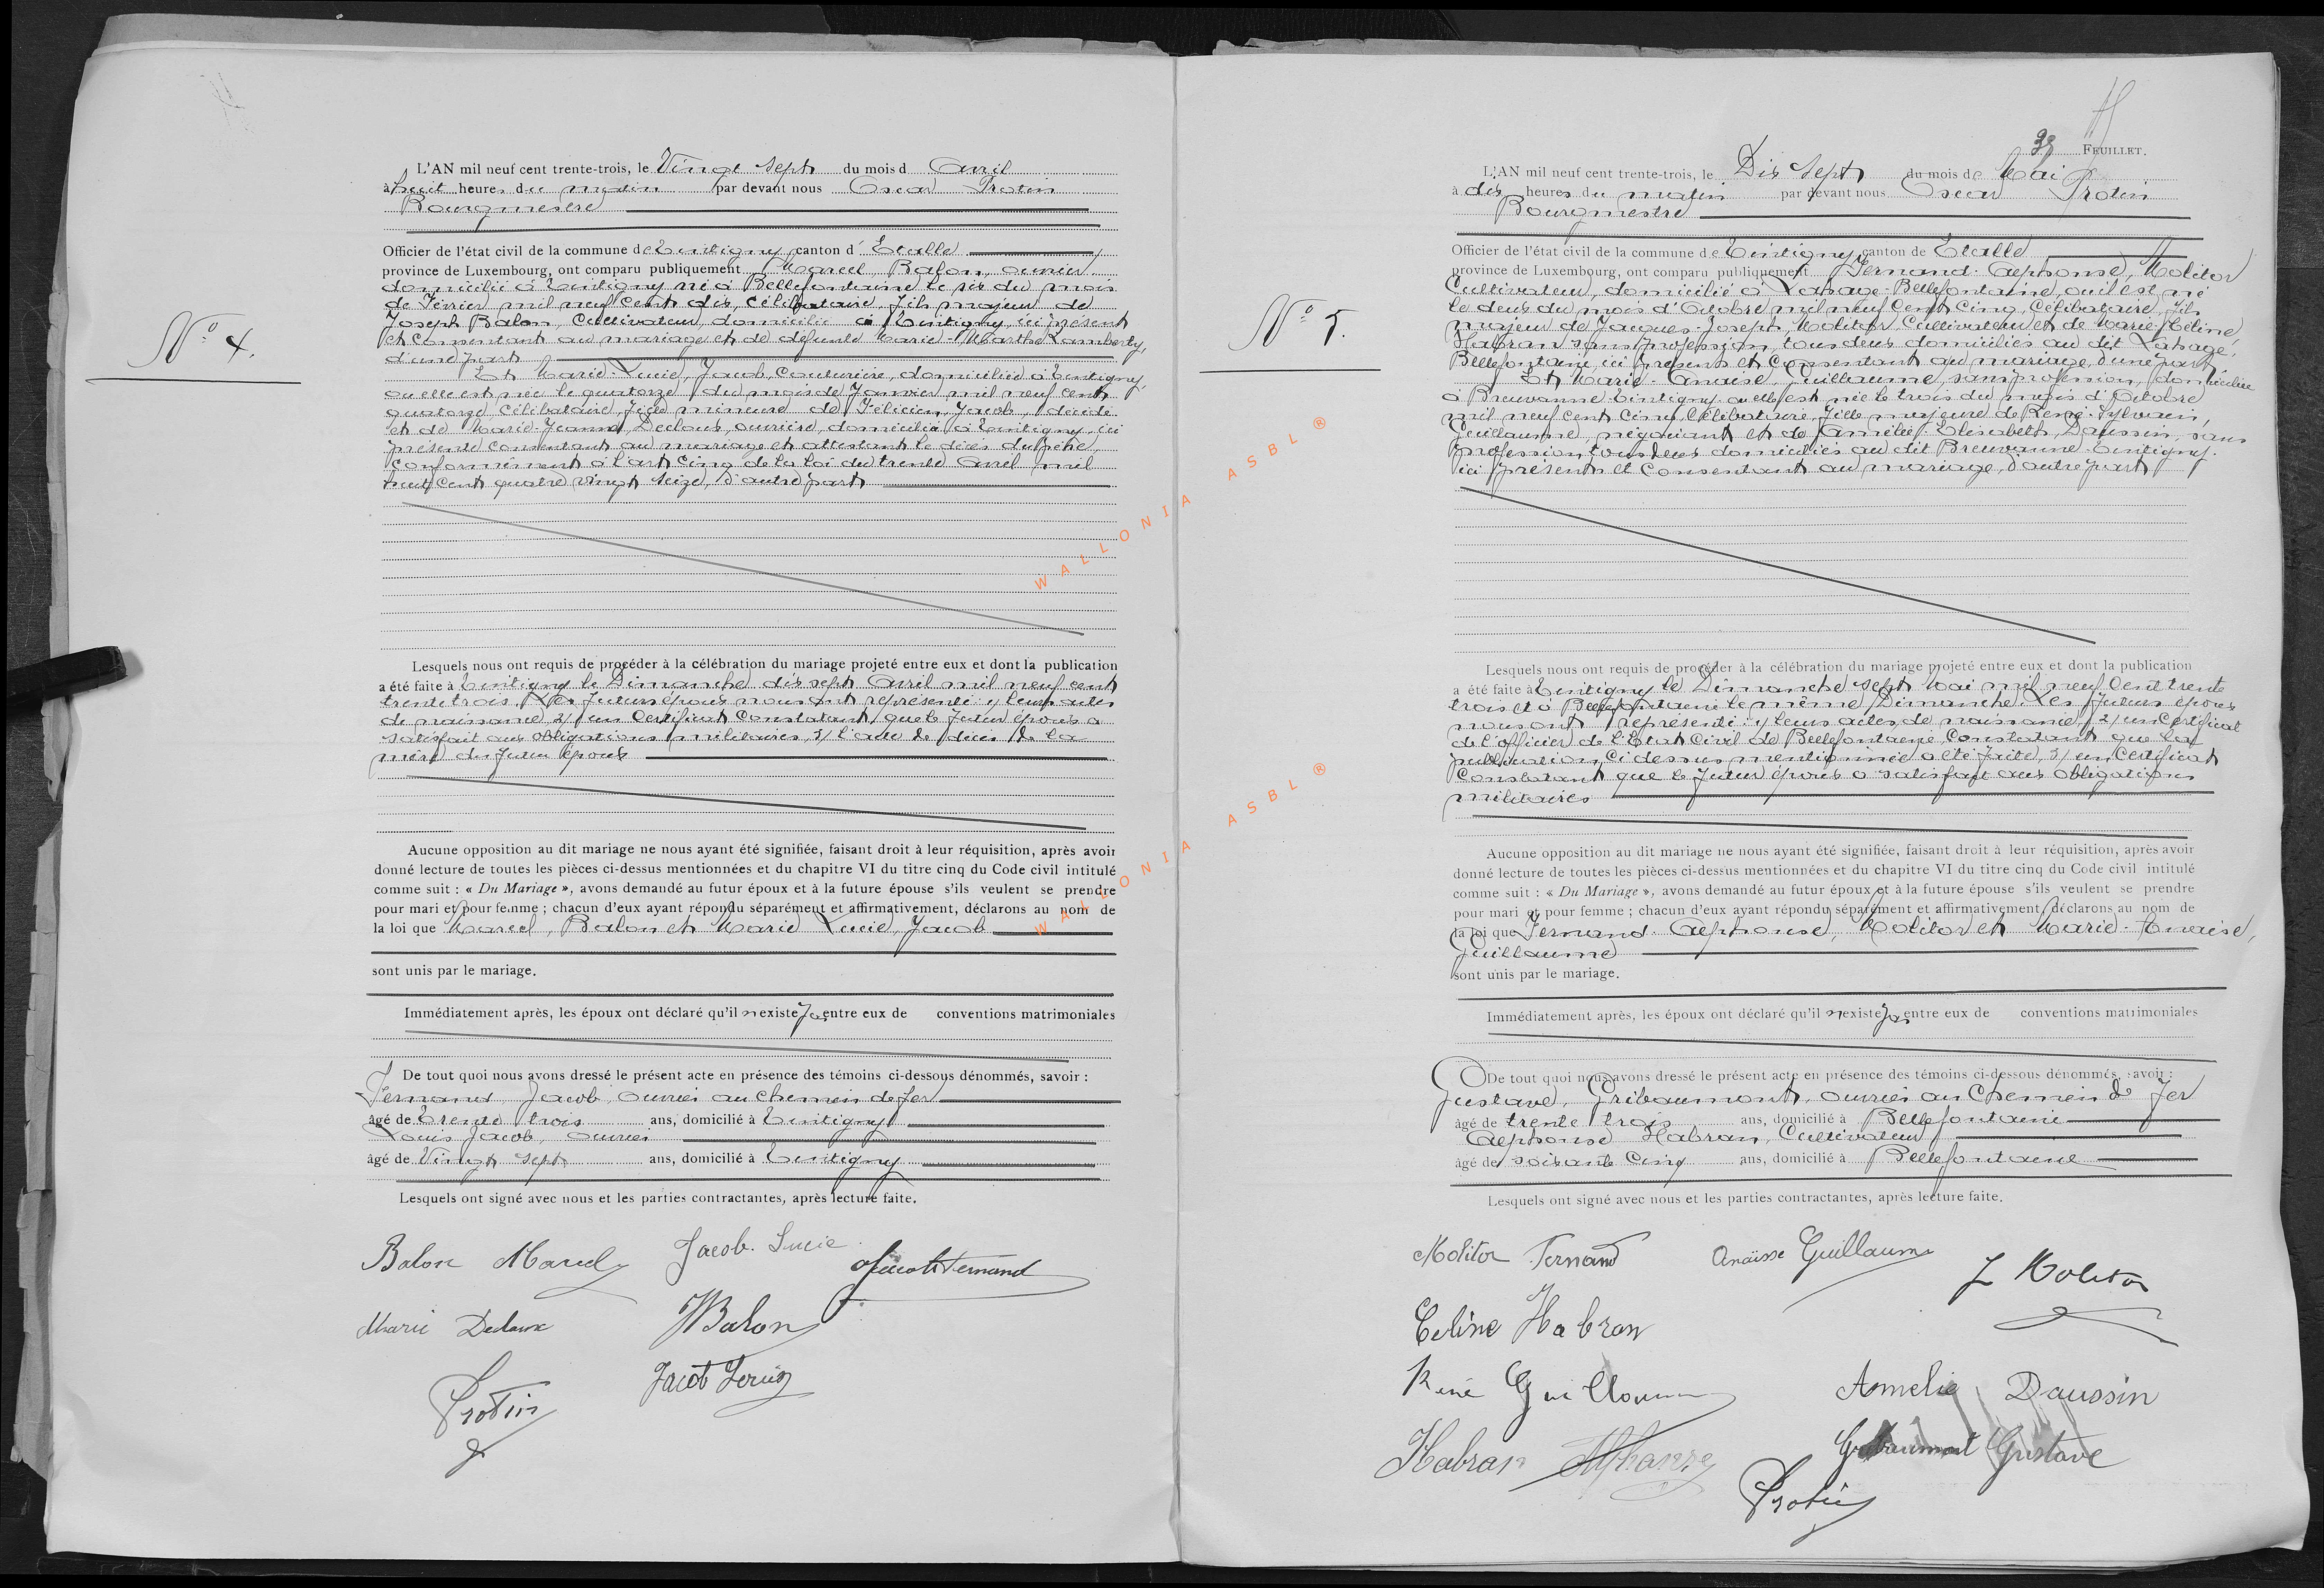 N° 4.
L'AN mil neuf cent trente-trois, le Vingt sept du mois d Avril
à huit heures du matin par devant nous Oscar Protin
Bourgmestre
Officier de l'état civil de la commune de Tintigny canton d' Etalle
province de Luxembourg, ont comparu publiquement Marcel, Balon, ouvrier
domicilié à Tintigny né à Bellefontaine le six du mois
de Février mil neuf cent dix, célibataire, fils majeur de
Joseph Balon, Cultivateur, domicilié à Tintigny, ici présent
et consentant au mariage et de défunte Marie-Marthe Lamberty,
d'une part
Et Marie-Lucie, Jacob, Couturière, domiciliée à Tintigny,
où elle est née le quatorze du mois de Janvier mil neuf cent
quatorze célibataire, fille mineure de Félicien, Jacob, décédé
et de Marie-Jeanne, Declaux, ouvrière, domiciliée à Tintigny, ici
présente consentant au mariage et attestant le décès du père,
conformément à l'art cinq de la loi du trente avril mil
huit cent quatre vingt seize, d'autre part
Lesquels nous ont requis de procéder à la célébration du mariage projeté entre eux et dont la publication
a été faite à Tintigny le Dimanche dix sept Avril mil neuf cent
trente trois. Les futurs époux nous ont représenté: 1/ leurs actes
de naissance, 2/ un Certificat constatant que le futur époux a
satisfait aux obligations militaires, 3/ l'acte de décès de la
mère du futur époux
Aucune opposition au dit mariage ne nous ayant été signifiée, faisant droit à leur réquisition, après avoir
donné lecture de toutes les pièces ci-dessus mentionnées et du chapitre VI du titre cinq du Code civil intitulé
comme suit : « Du Mariage », avons demandé au futur époux et à la future épouse s'ils veulent se prendre
pour mari et pour femme ; chacun d'eux ayant répondu séparément et affirmativement, déclarons au nom de
la loi que Marcel, Balon et Marie Lucie, Jacob
sont unis par le mariage.
Immédiatement après, les époux ont déclaré qu'il n'existe pas entre eux de conventions matrimoniales
De tout quoi nous avons dressé le présent acte en présence des témoins ci-dessous dénommés, savoir :
Fernand Jacob, Ouvrier au Chemin de fer
âgé de Trente trois ans, domicilié à Tintigny
Louis Jacob, Ouvrier
âgé de Vingt sept ans, domicilié à Tintigny
Lesquels ont signé avec nous et les parties contractantes, après lecture faite.
Balon Marcel Jacob. Lucie Jacob Fernand
Marie Declaux JBalon
Protin Jacob Louis
38 FEUILLET.
N° 5.
L'AN mil neuf cent trente-trois, le Dix Sept du mois de Mai
à dix heures du matin par devant nous Oscar Protin
Bourgmestre
Officier de l'état civil de la commune de Tintigny canton de Etalle
province de Luxembourg, ont comparu publiquement Fernand-Alphonse, Molitor
Cultivateur, domicilié à Lahage-Bellefontaine, où il est né
le deux du mois d'Octobre mil neuf cent cinq, Célibataire, fils
majeur de Jacques-Joseph, Molitor Cultivateur et de Marie-Céline
Habran sans profession, tous deux domiciliés au dit Lahage-
Bellefontaine, ici présents et consentant au mariage, d'une part
Et Marie-Anaïse, Guillaume, sans profession, domiciliée
à Breuvanne-Tintigny où elle est née le trois du mois d'Octobre
mil neuf cent cinq, Célibataire, fille majeure de René-Sylvain,
Guillaume, négociant et de Amélie-Elisabeth, Daussin, sans
profession, tous deux domiciliés au dit Breuvanne-Tintigny.
ici présents et consentant au mariage, d'autre part
Lesquels nous ont requis de procéder à la célébration du mariage projeté entre eux et dont la publication
a été faite à Tintigny le Dimanche sept Mai mil neuf cent trente
trois et à Bellefontaine le même Dimanche. Les futurs époux
nous ont représenté: 1/ leurs actes de naissance, 2/ un Certificat
de l'officier de l'Etat Civil de Bellefontaine, constatant que la
publication ci dessus mentionnée a été faite, 3/ un Certificat
Constatant que le futur époux a satisfait aux obligations
militaires
Aucune opposition au dit mariage ne nous ayant été signifiée, faisant droit à leur réquisition, après avoir
donné lecture de toutes les pièces ci-dessus mentionnées et du chapitre VI du titre cinq du Code civil intitulé
comme suit : « Du Mariage », avons demandé au futur époux et à la future épouse s'ils veulent se prendre
pour mari et pour femme ; chacun d'eux ayant répondu séparément et affirmativement, déclarons au nom de
la loi que Fernand-Alphonse, Molitor et Marie-Anaïse,
Guillaume
sont unis par le mariage.
Immédiatement après, les époux ont déclaré qu'il n'existe pas entre eux de conventions matrimoniales
De tout quoi nous avons dressé le présent acte en présence des témoins ci-dessous dénommés, savoir :
Gustave, Gribaumont, ouvrier au Chemin de fer
âgé de trente trois ans, domicilié à Bellefontaine
Alphonse Habran, Cultivateur
âgé de soixante cinq ans, domicilié à Bellefontaine
Lesquels ont signé avec nous et les parties contractantes, après lecture faite.
Molitor Fernand Anaïsse Guillaume J Molitor
Celine Habran
René Guillaume Amelie Daussin
Habran Alphonse Gribaumont Gustave
Protin
WALLONIA ASBL ®
WALLONIA ASBL ®